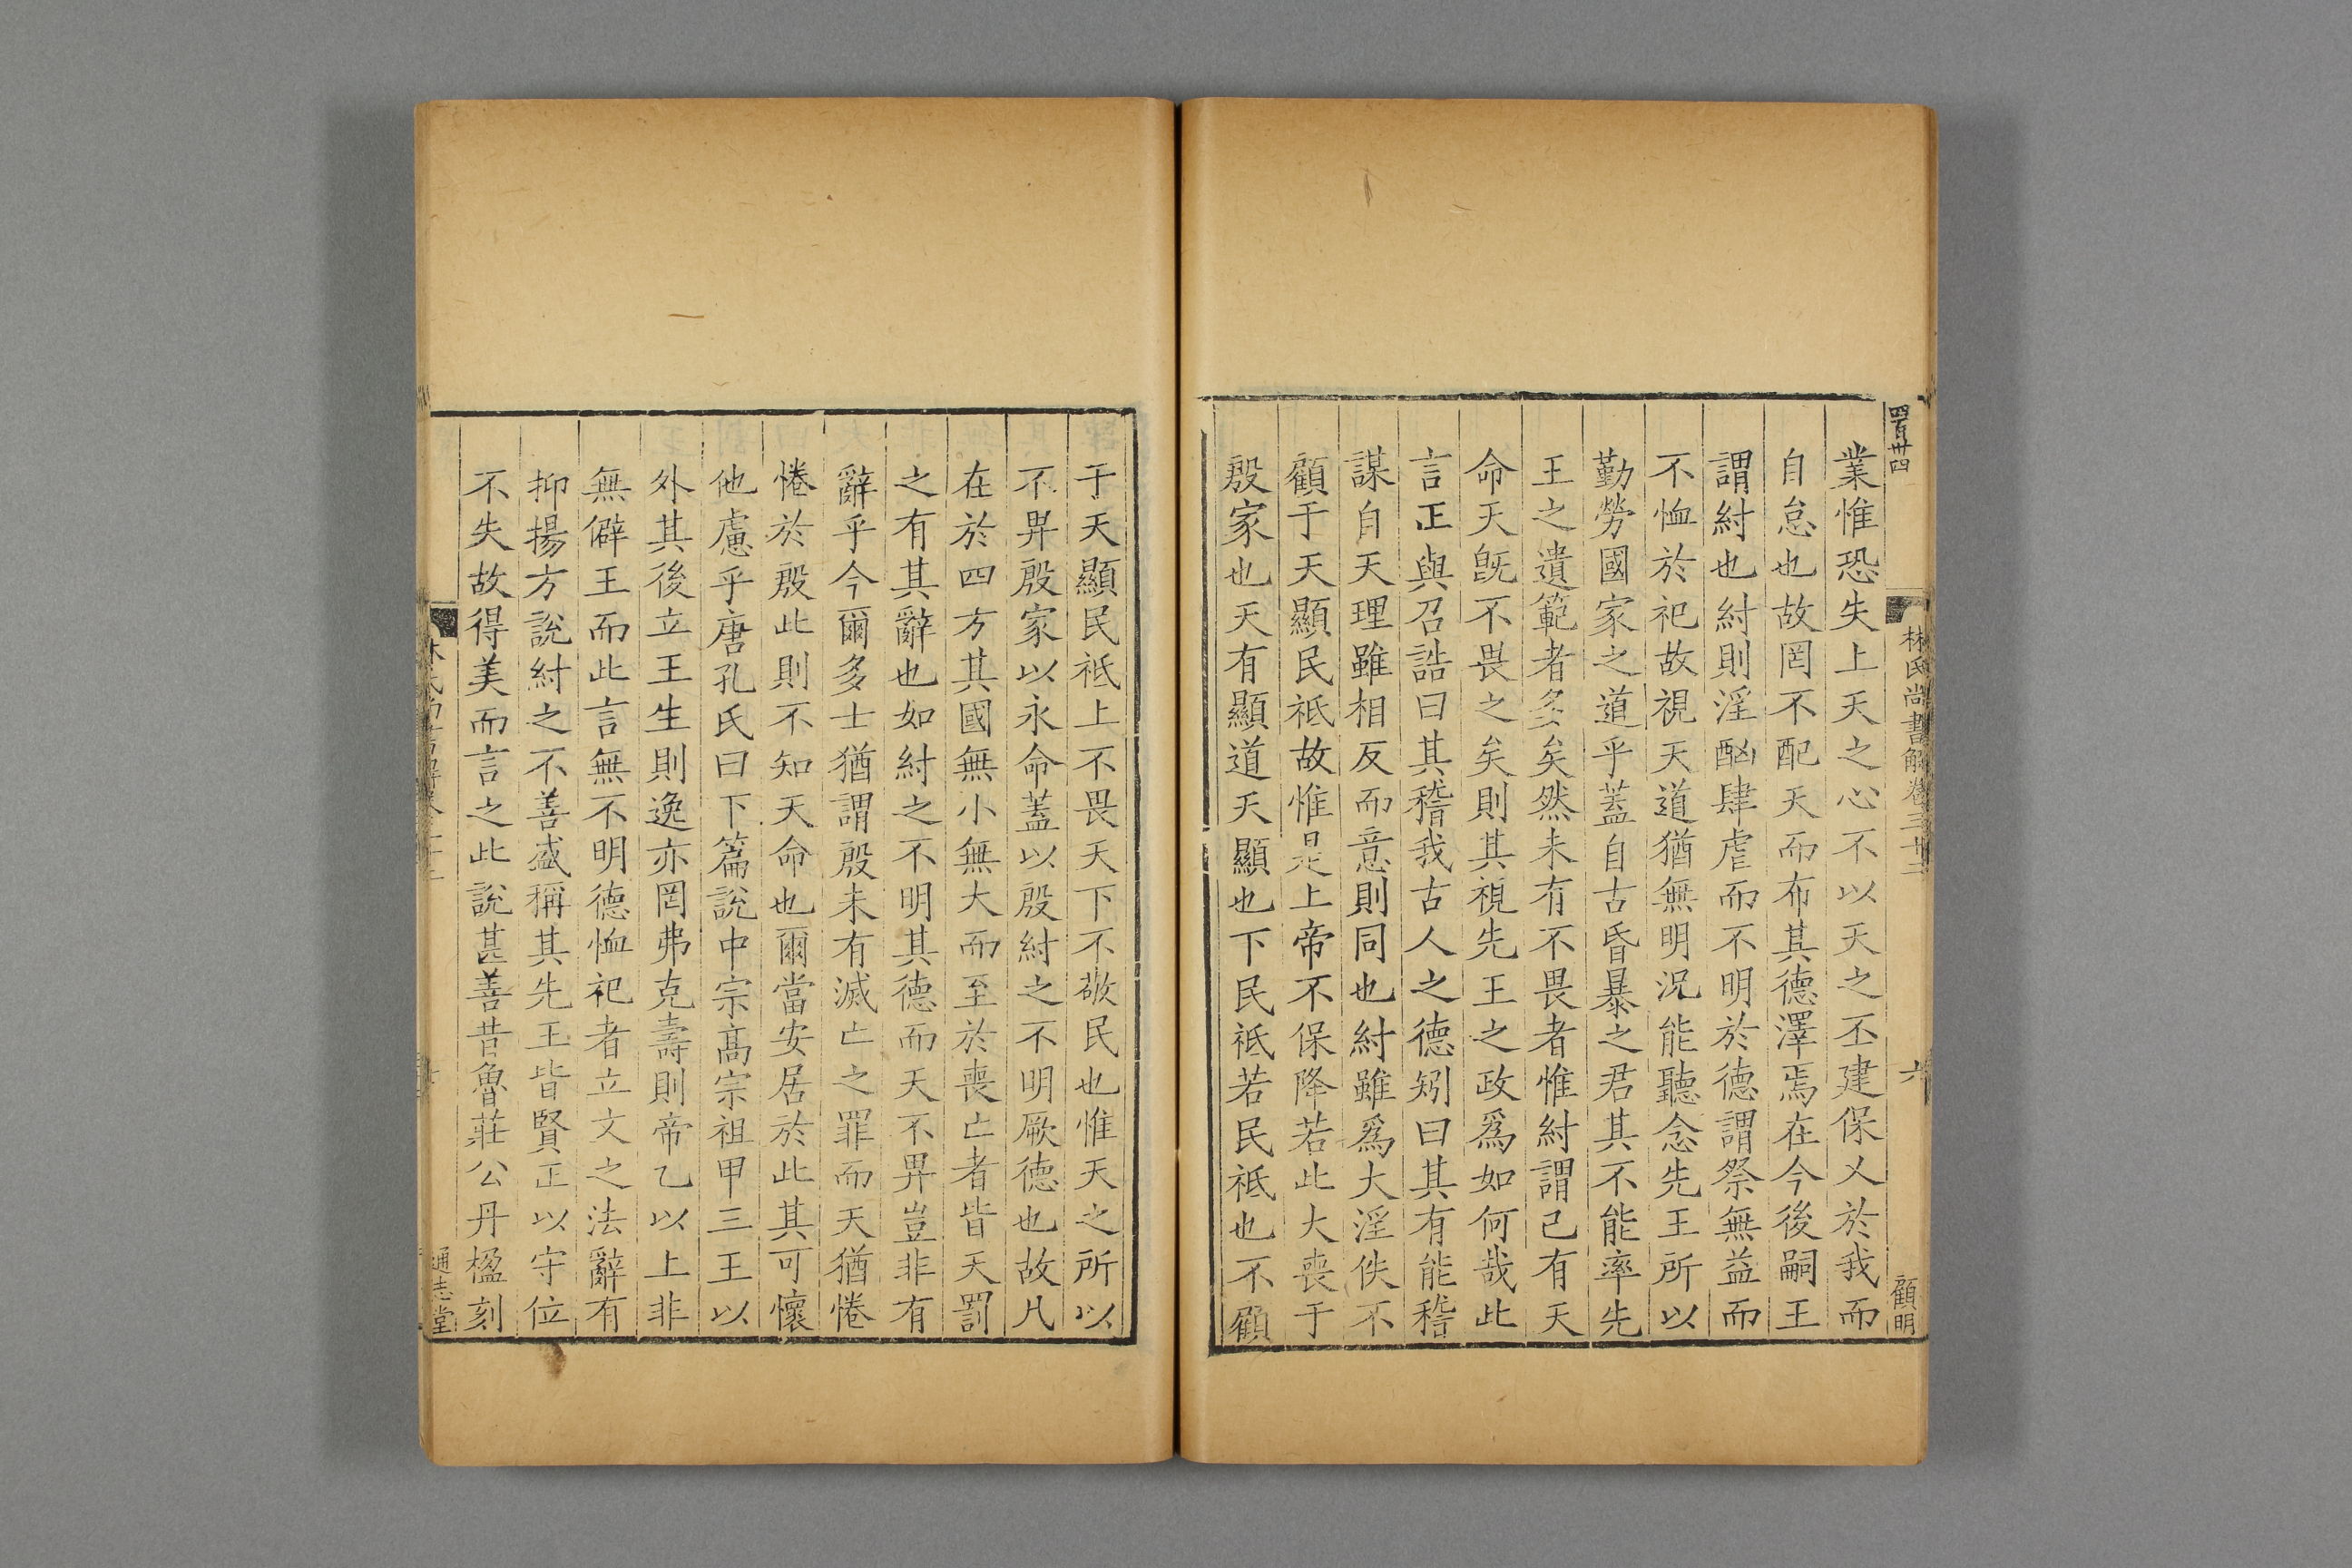 業惟恐失上天之心不以天之丕建保乂於我而
自怠也故罔不配天而布其德澤焉在今後嗣王
謂紂也紂則淫酗肆虐而不明於德謂祭無益而
不恤於祀故視天道猶無明況能聽念先王所以
勤勞國家之道乎蓋自古昏暴之君其不能率先
王之遺範者多矣然未有不畏者惟紂謂己有天
命天旣不畏之矣則其視先王之政爲如何哉此
言正與召誥曰其稽我古人之德矧曰其有能稽
謀自天理雖相反而意則同也紂雖爲大淫佚不
顧于天顯民祗故惟是上帝不保降若此大喪于
殷家也天有顯道天顯也下民祗若民祗也不顧
林氏尚書解卷三十二
六
顧明
于天顯民祗上不畏天下不敬民也惟天之所以
不畀殷家以永命蓋以殷紂之不明厥德也故凡
在於四方其國無小無大而至於喪亡者皆天罰
之有其辭也如紂之不明其德而天不畀豈非有
辭乎今爾多士猶謂殷未有滅亡之罪而天猶惓
惓於殷此則不知天命也爾當安居於此其可懷
他慮乎唐孔氏曰下篇說中宗髙宗祖甲三王以
外其後立王生則逸亦罔弗克壽則帝乙以上非
無僻王而此言無不明德恤祀者立文之法辭有
抑揚方說紂之不善盛稱其先王皆賢正以守位
不失故得美而言之此說甚善昔魯莊公丹楹刻
通志堂